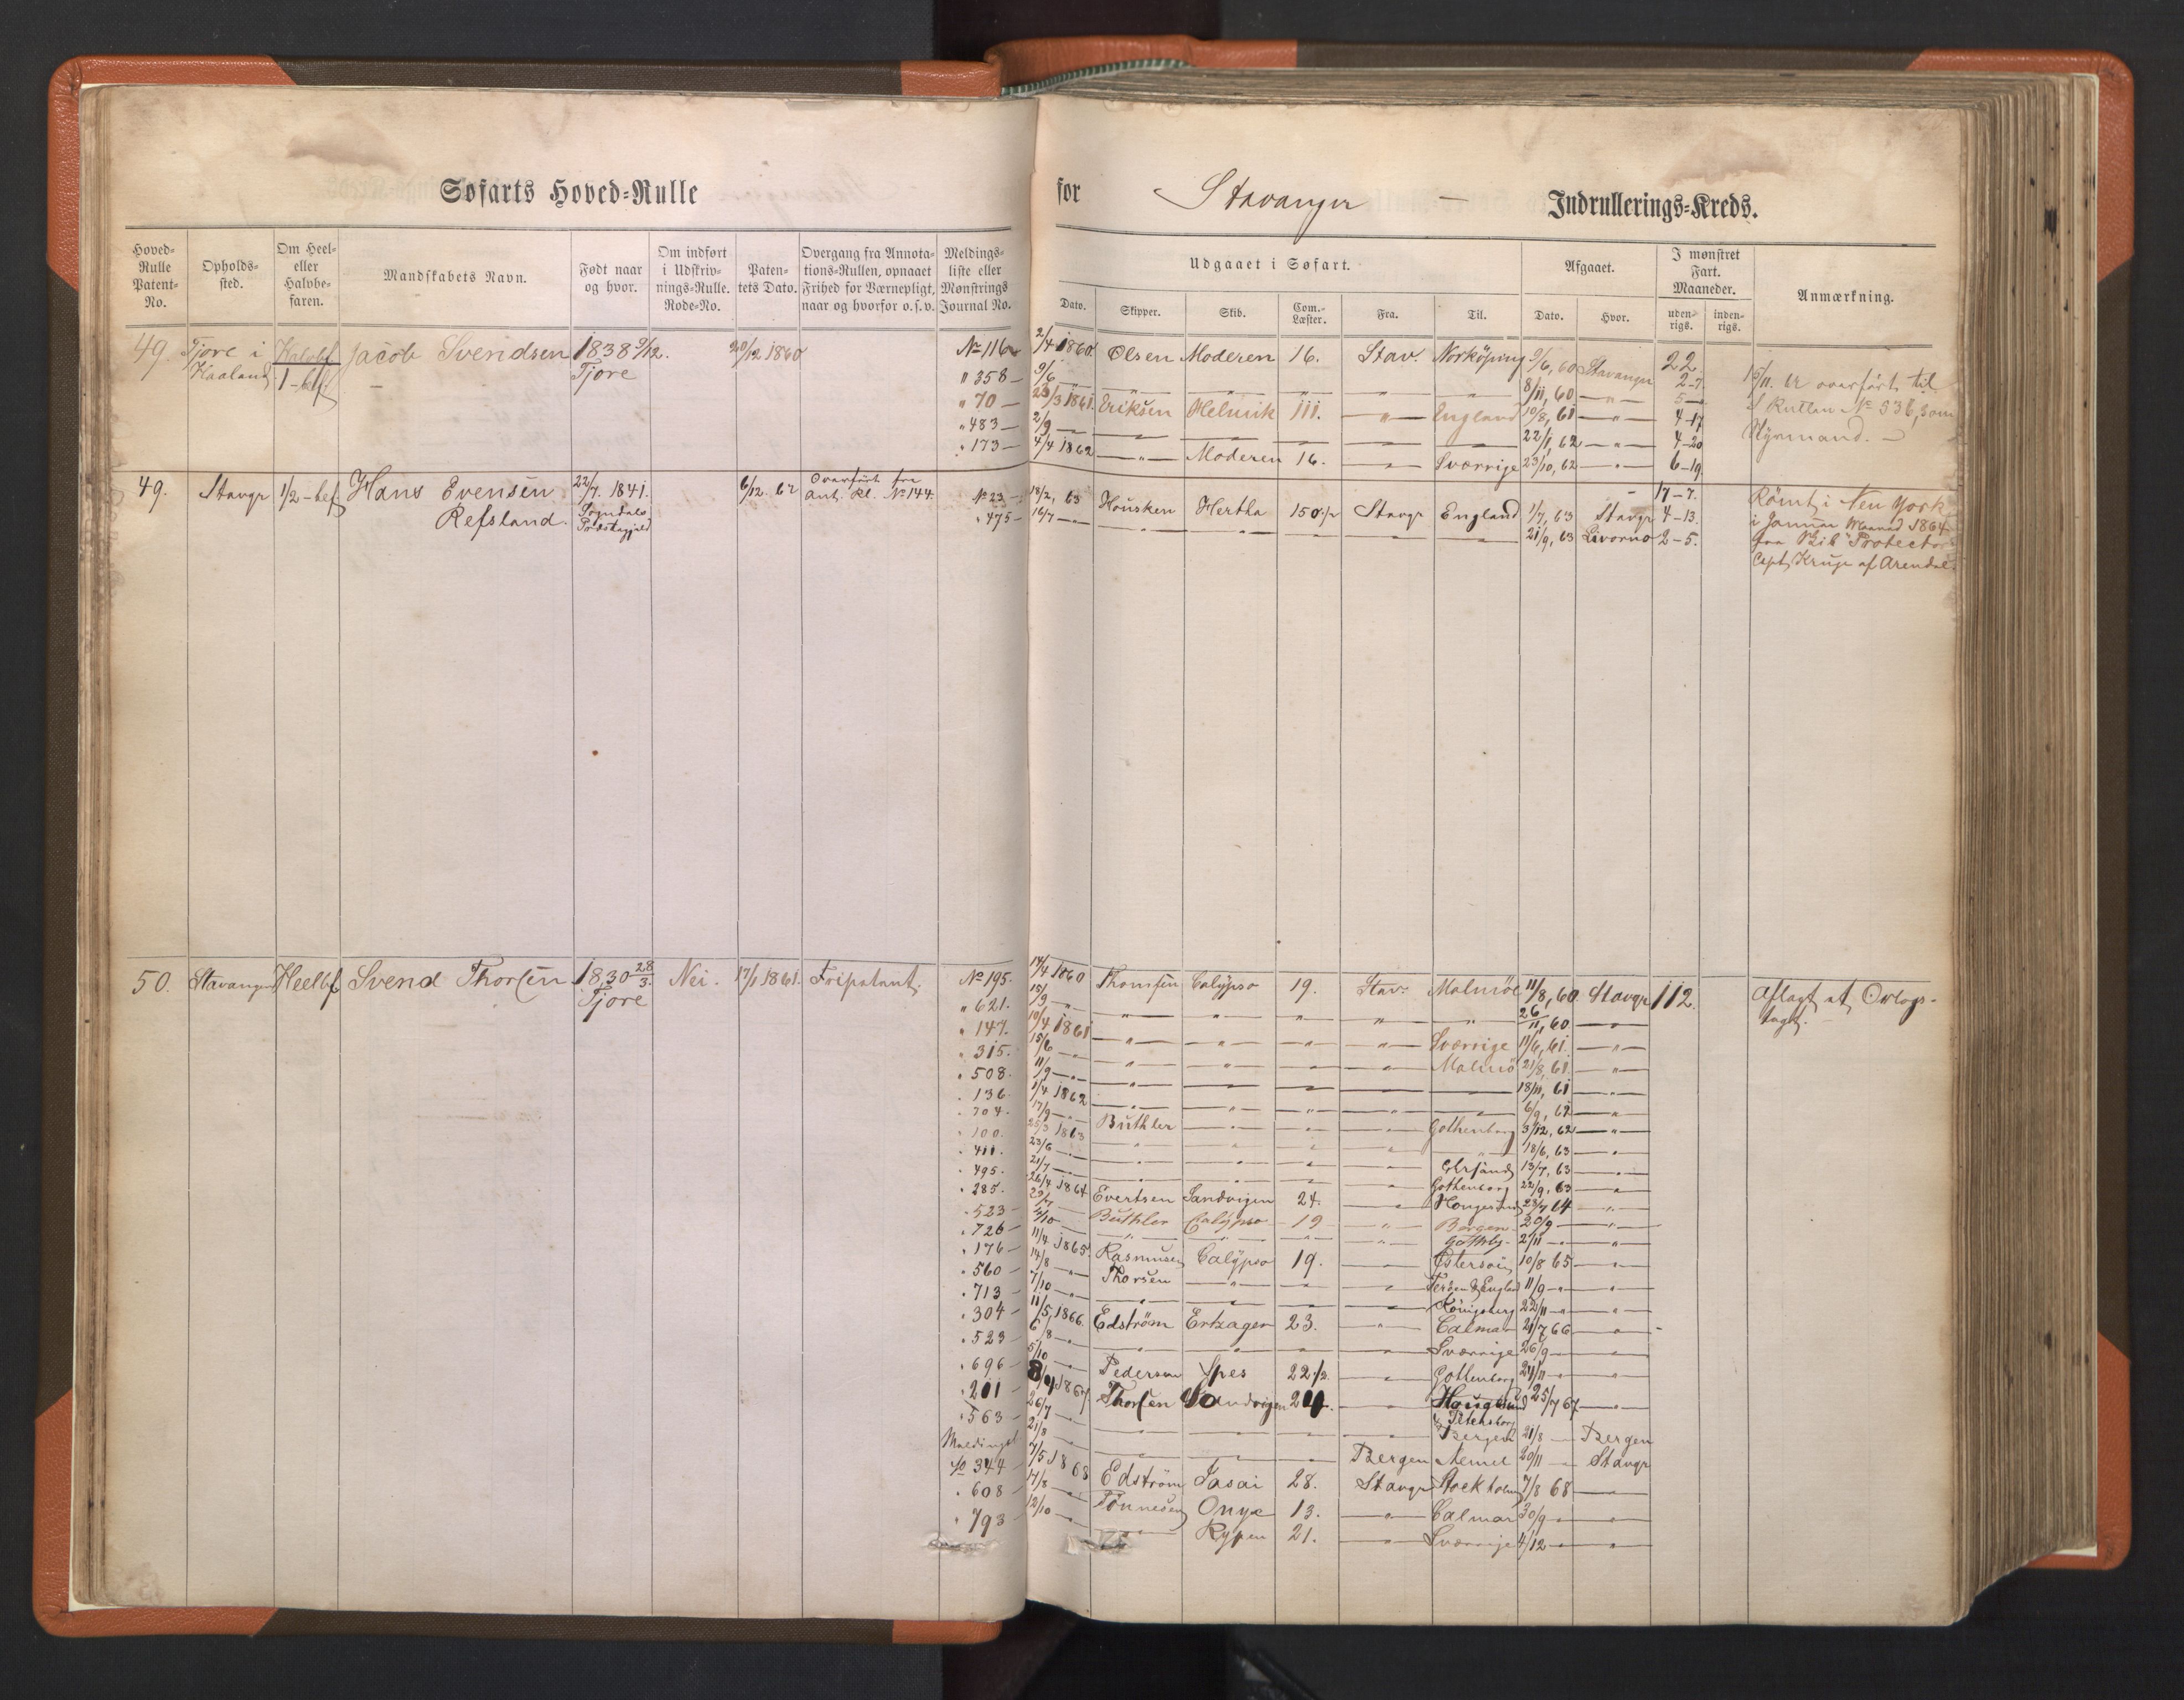 Søfarts Hoved=Rulle
for Stavanger — Indrullerings=Kreds.
Hoved=Rulle Patent=No.
Opholds=sted.
Om Heel= eller Halvbe=faren.
Mandskabets Navn.
Født naar og hvor.
Om indført i Udskriv=nings=Rulle. Rode=No.
Paten=tets Dato.
Overgang fra Annota=tions=Rullen, opnaaet Frihed for Værnepligt, naar og hvorfor o.s.v.
Meldings=liste eller Mønstrings Journal No.
Udgaaet i Søfart.
Dato. Skipper. Skib. Com.=Læster. Fra. Til.
Afgaaet.
Dato. Hvor.
I mønstret Fart. Maaneder.
uden=rigs. inden=rigs.
Anmærkning.
49. Tjore i Haaland Halvbf 1-bf Jacob Svendsen 1838 9/12. Tjore 20/12 1860 No 116 2/4 1860 Olsen Moderen 16. Stav. Norköping 9/6, 60 Stavanger 22
" 358 — 9/6 — " — — " — — " — — " — — " — 8/11, 60 — " — 2-7
" 70 — 23/3 1861. Eriksen Helmik 111. — " — England 10/8, 61 — " — 5
" 483 — 2/9 — — — — — — 22/1, 62 — " — 4-17
" 173 — 4/4 1862 — " — Moderen 16. — " — Sverrige 23/10, 62 — " — 4-20
6-19
17-7.
15/11. er overført til
S Rullen No 536, som
Styrmand. —
49. Stavgr 1/2-bef Hans Evensen Refsland. 22/7. 1841. Sogndals Præstegjeld 6/12. 62 Overført fra Ant. Rl. No 144. No 23 — 18/2, 63 Housken Hertha 150 1/2 Stavgr England 1/7, 63 Stavgr 4-13.
" 475 — 16/7 — — — — — — 21/9, 63 Livorno 2-5.
Römt i New York
i Januar Maaned 1864
fra Skib "Protector"
Capt. Kruge af Arendal.
50. Stavanger Heelbf Svend Thorsen 1830 28/3. Tjore Nei. 17/1 1861. Fripatent. No 195. 14/4 1860 Thomsen Calypso 19. Stav. Malmöe 11/8, 60 Stavgr 112. Aflagt at Orlogs-
" 621. 15/9 — " — — " — — " — — " — — " — 26/11, 60 — " — toget.
" 147. 10/4 1861 — " — — " — — " — — " — Sverrige 11/6, 61. — " —
" 315. 15/6 — " — — " — — " — — " — — " — Malmö 21/8, 61. — " —
" 508. 11/9 — " — — " — — — — — 18/11, 61 — " —
" 136. 1/4 1862 — " — — " — — " — — " — — " — 6/9, 62 — " —
" 704. 17/9 — " — Buthler — " — — " — — " — Gothenborg 3/12, 62 — " —
" 100. 25/3 1863 — " — — " — — " — — " — — " — 18/6, 63 — " —
" 411. 23/6 — " — — " — — " — — " — — " — 13/7, 63 — " —
" 495. 21/7 — " — — " — — " — — " — — " — Gothenborg 22/9, 63 — " —
" 285. 26/4 1864 Evertsen Sandvigen 24. — " — 23/7 64 — " —
" 523 — Buthler Calypso 19 — " — Bergen 20/9 — " —
" 726 — 3/10 — " — — " — — " — — " — Gothby. 2/11 — " — — " —
" 176 — 11/4 1865. Rasmusen Calypso 19. — " — 10/8 65 — " —
" 560 — 14/8 — " — Thorsen — " — — " — — " — 11/9 — " — — " —
" 713 — 7/10 — " — — " — — " — — " — — " — Königsberg 22/11 — " — — " —
" 304 — 11/5, 1866. Edström 23. — " — Calmar 21/7 66 — " —
" 523 — 6/8 — " — — " — — " — — " — — " — Sverrige 26/9 — " — — " —
" 696 — 5/10 — " — Pedersen Spes 22 1/2. — " — Gothenborg 24/11 — " — — " —
" 201 — 8/4 1867 Thorsen Sandvigen 24. — " — 25/7 67 — " —
" 563 — 26/7 — " — — " — — " — — " — — " — Bergen 21/8 — Bergen
Meldingsl 21/8 — — — — Bergen Memel 20/11 — Stavgr
344 — 7/5 1868 Edström Jasai 28. Stavgr Stockholm 7/8 68 — " —
" 608 — 17/8 — " — Tönnesen Onyx 13. — " — Calmar 30/9 — " — — " —
" 793 12/10 — " — — " — Rypen 21. — " — Sverrige 4/12 — " — — " —